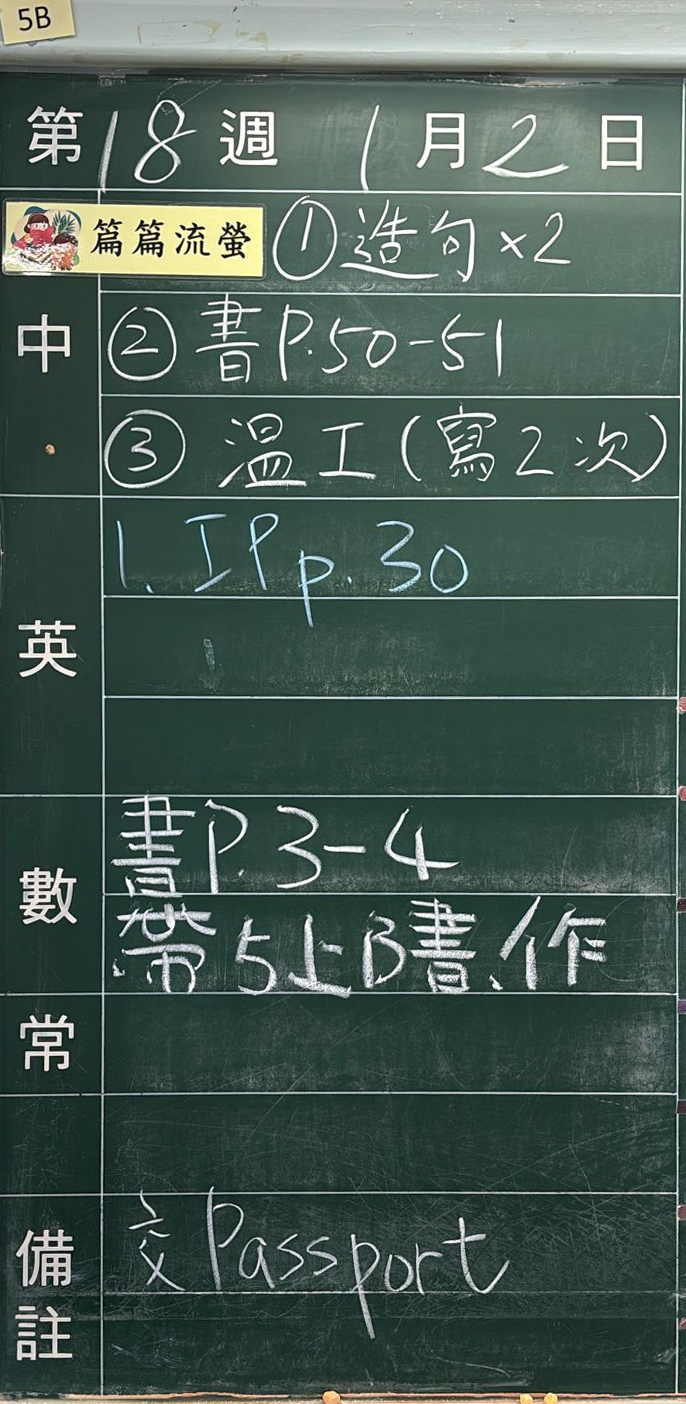 5B
第18週 1月2日
篇篇流螢 ①造句×2
中 ②書P.50-51
③溫工(寫2次)
英 1. IP p.30
數 書P.3-4
帶5上B書、作
常
備註 交Passport